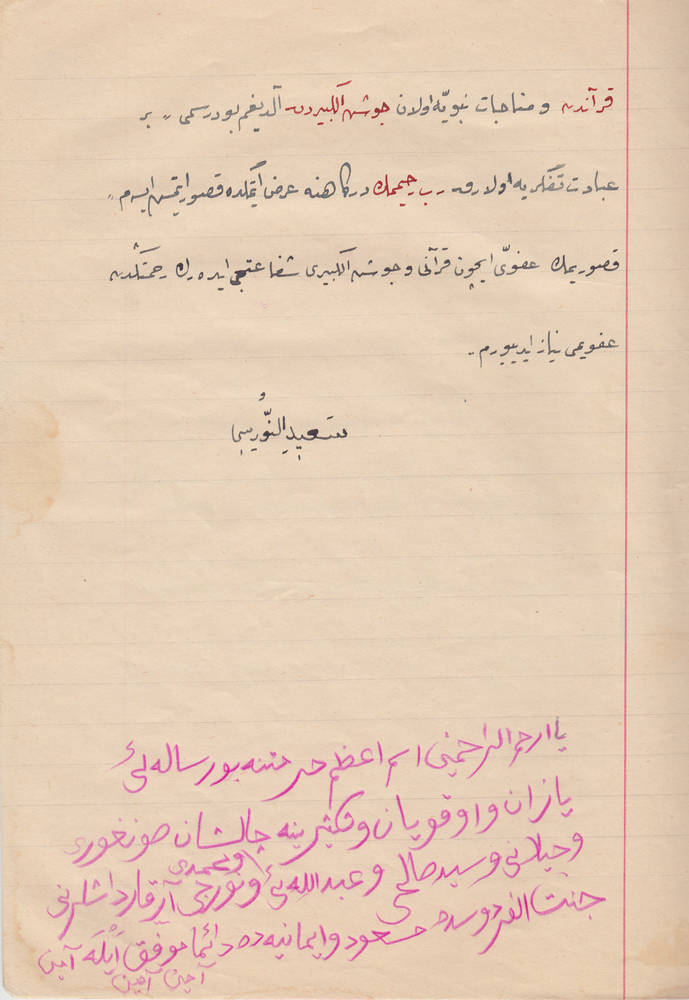 قرآندن و مناجات نبویّه اولان جوشن الکبیردن آلدیغم بو درسمی ، بر
عبادت تفکریه اولارق رب رحیممك درکاهنه عرض ایتمکده قصور ایتمش ایسم ،
قصوریمك عفوی ایچون قرآنی و جوشن الکبیری شفاعتجی ایده رك رحمتکدن
عفویمی نیاز ایدییورم .
سعید النّورسی
یا ارحم الراحمین اسم اعظم حرمتنه بو رساله یی
یازان و اوقویان و تکثیرینه چالیشان صونغوری
و جیلانی و سید صالحی و عبدالله یی و محمدی و نورجی آرقداشلرنی
جنت الفردوسده مسعود و ایمانیه ده دائما موفق ایله آمین
آمین آمین